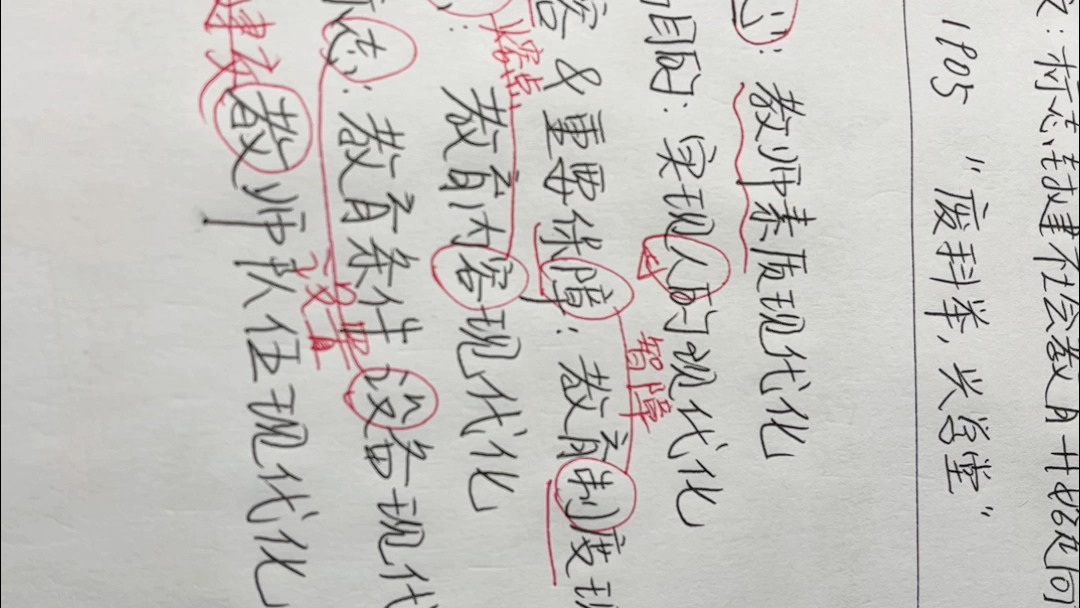 标志封建社会教育开始向
1905 "废科举,兴学堂"
: 教师素质现代化
目的: 实现人的现代化
智障
容 & 重要保障: 教育制度现
熔点
教育内容现代化
志: 教育条件设备现代
设置
教师队伍现代化